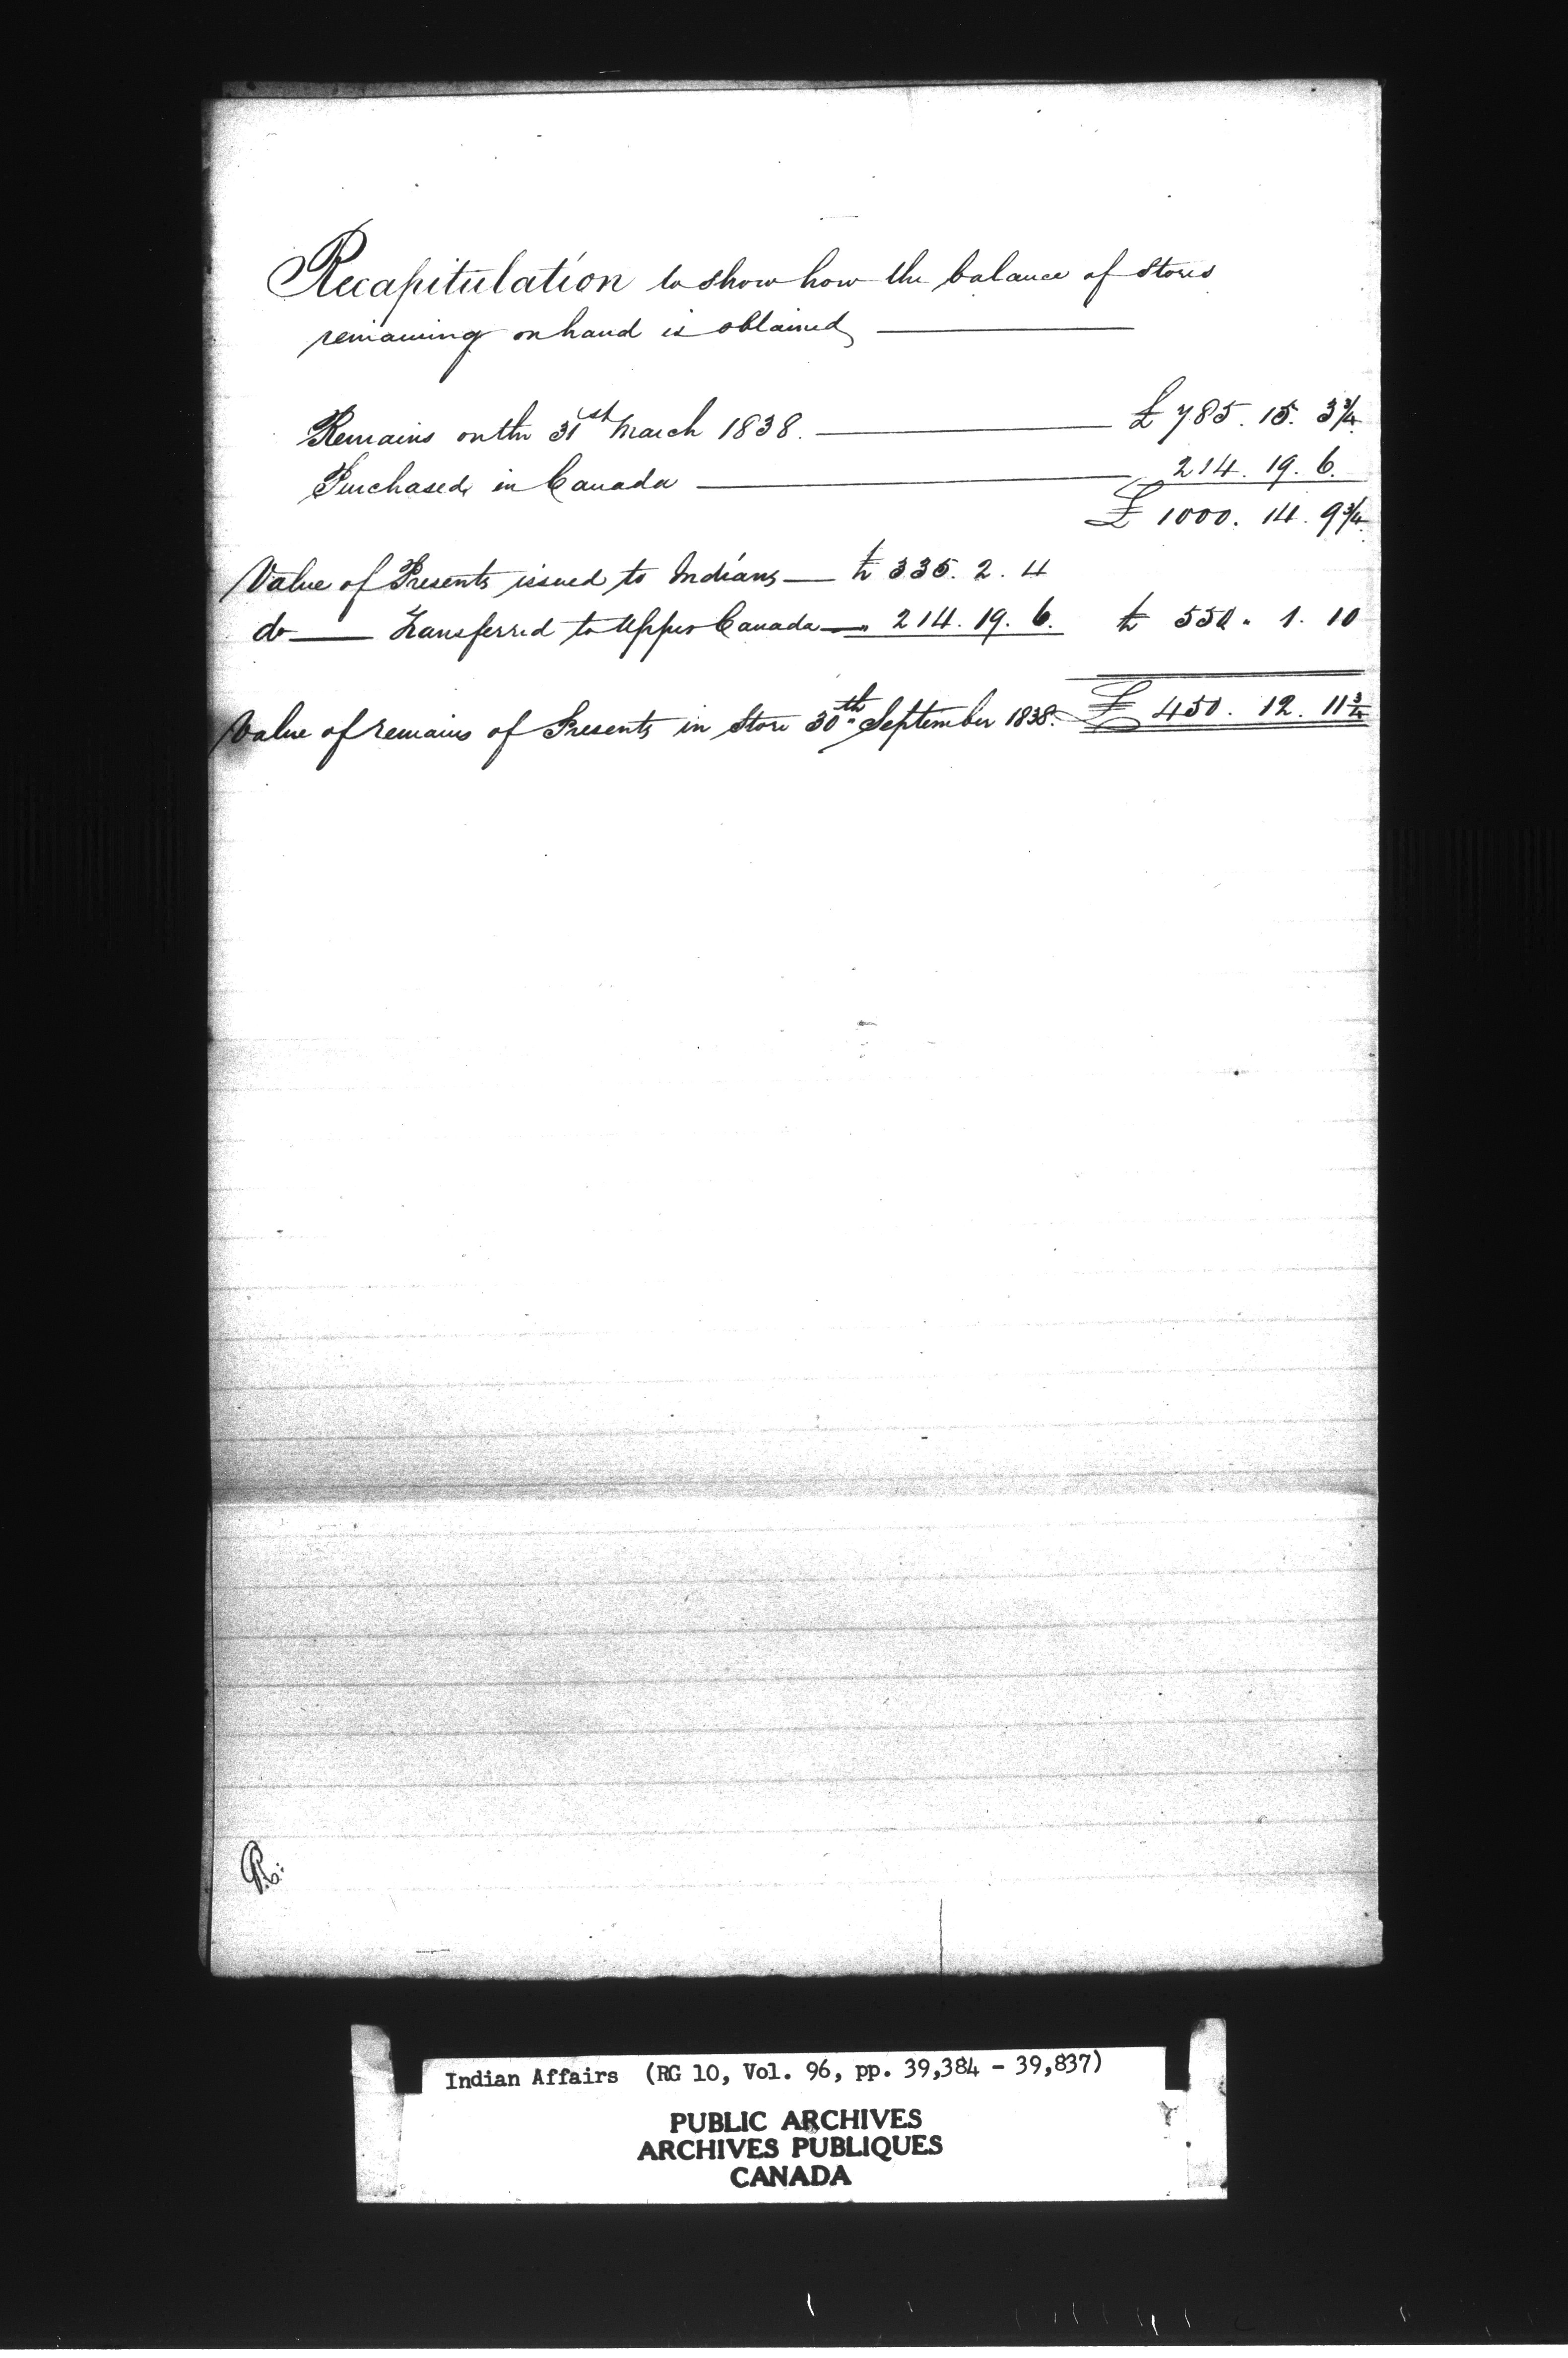 Recapitulation to show how the balance of Stores
remaining on hand is obtained
Remains on the 31st March 1838. £ 785. 15. 3¾
Purchased in Canada 214. 19. 6.
£ 1000. 14. 9¾
Value of Presents issued to Indians £ 335. 2. 4
do Transferred to Upper Canada " 214. 19. 6. £ 550 " 1. 10
Value of remains of Presents in Store 30th September 1838. £ 450. 12. 11¾
Indian Affairs (RG 10, Vol. 96, pp. 39,384 - 39,837)
PUBLIC ARCHIVES
ARCHIVES PUBLIQUES
CANADA